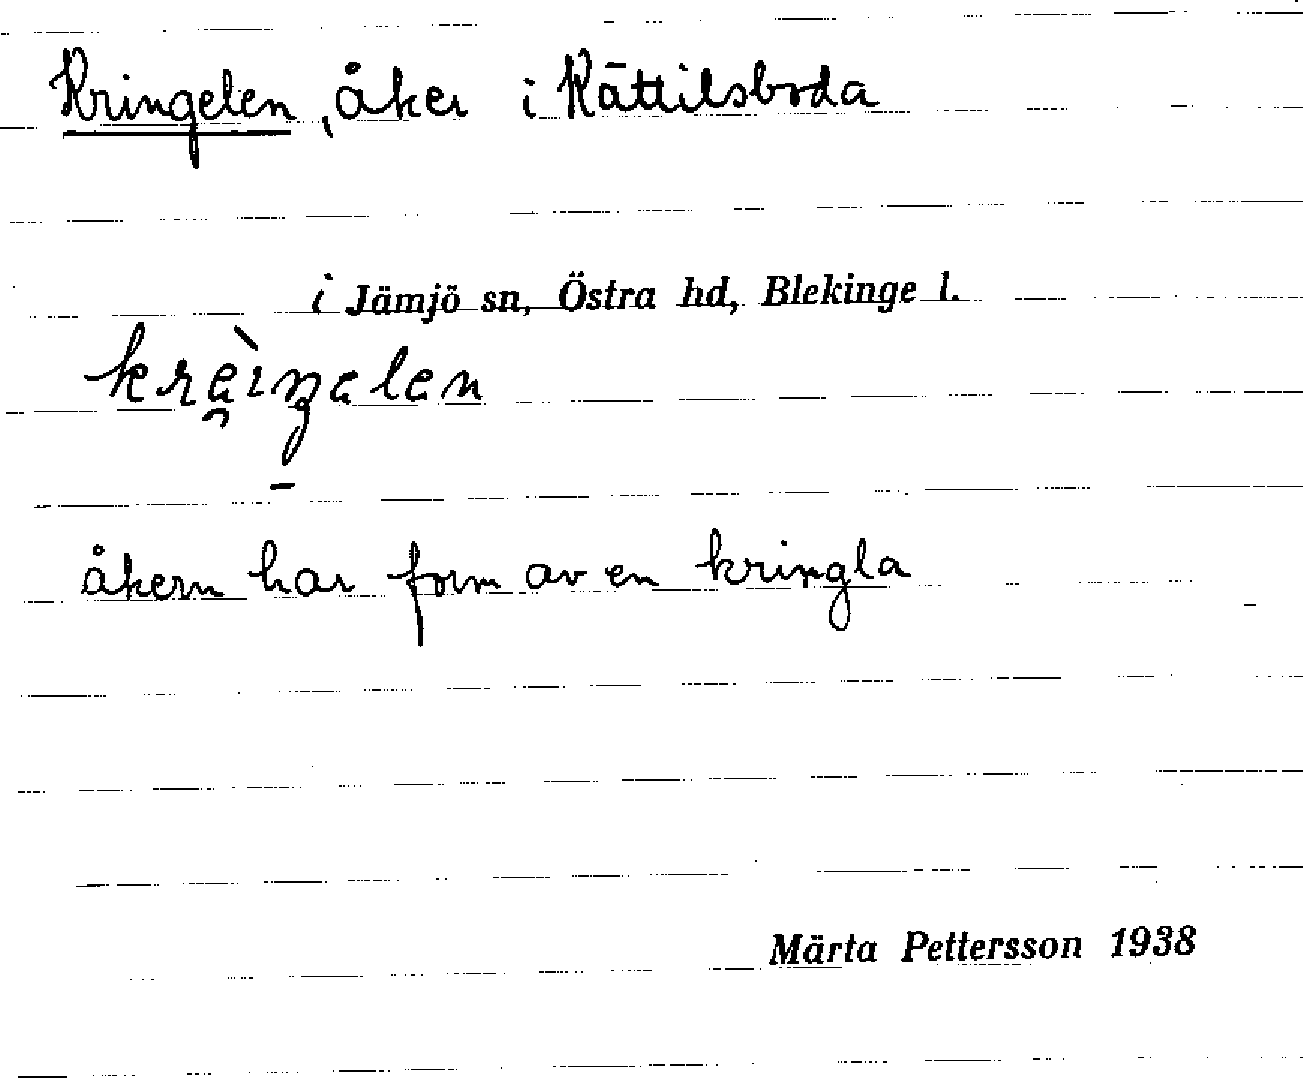 Kringelen, åker i Kättilsboda
i Jämjö sn, Östra hd, Blekinge l.
åkern har form av en kringla
Märta Pettersson 1938